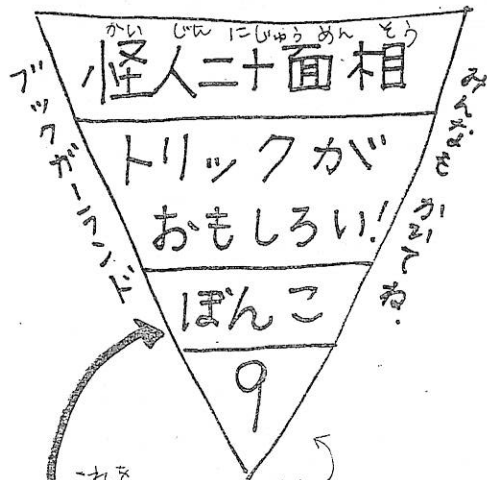 かい じん にじゅう めん そう
怪人二十面相
トリックが
おもしろい!
ぽんこ
9
ブックガーランド
みんなも かいてね.
これを